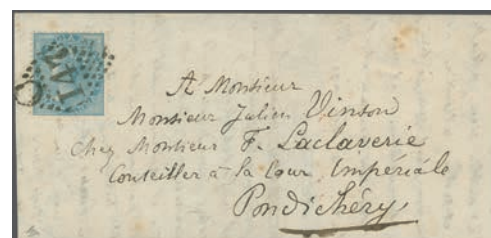 C
147
A Monsieur
Monsieur Julien Vinson
Chez Monsieur F. Laclaverie
Conseiller à la Cour Impériale
Pondichéry